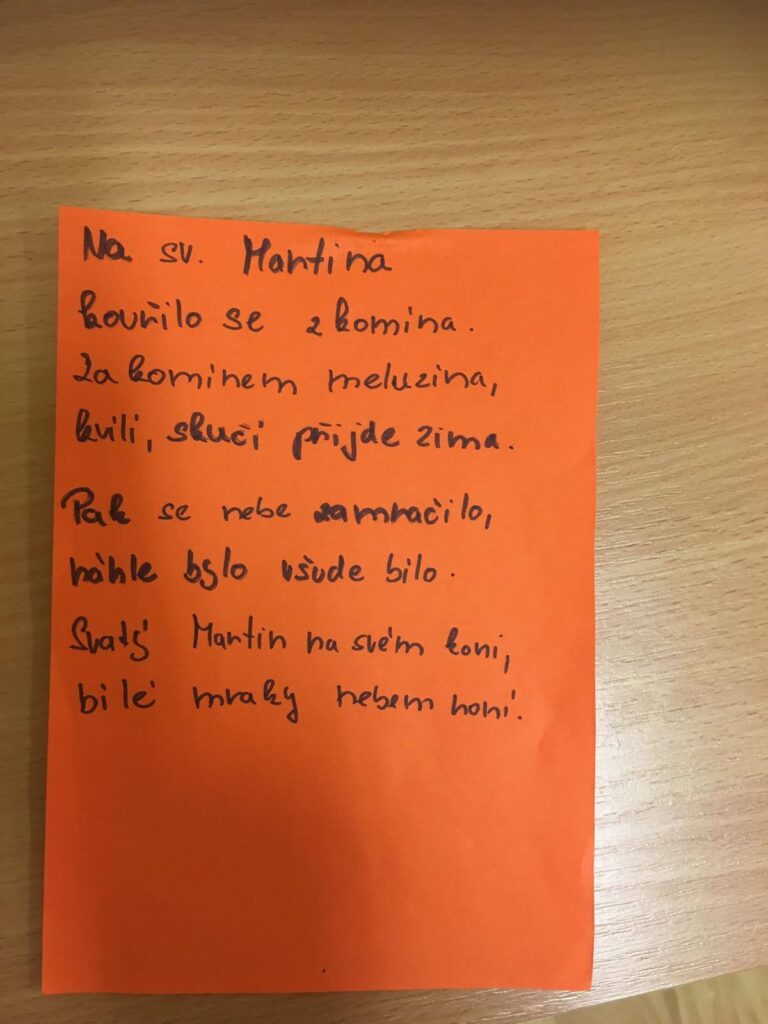 Na sv. Martina
kouřilo se z komina.
Za kominem meluzina,
kvili, skučí přijde zima.
Pak se nebe zamračilo,
náhle bylo všude bilo.
Svatý Martin na svém koni,
bilé mraky nebem honí.